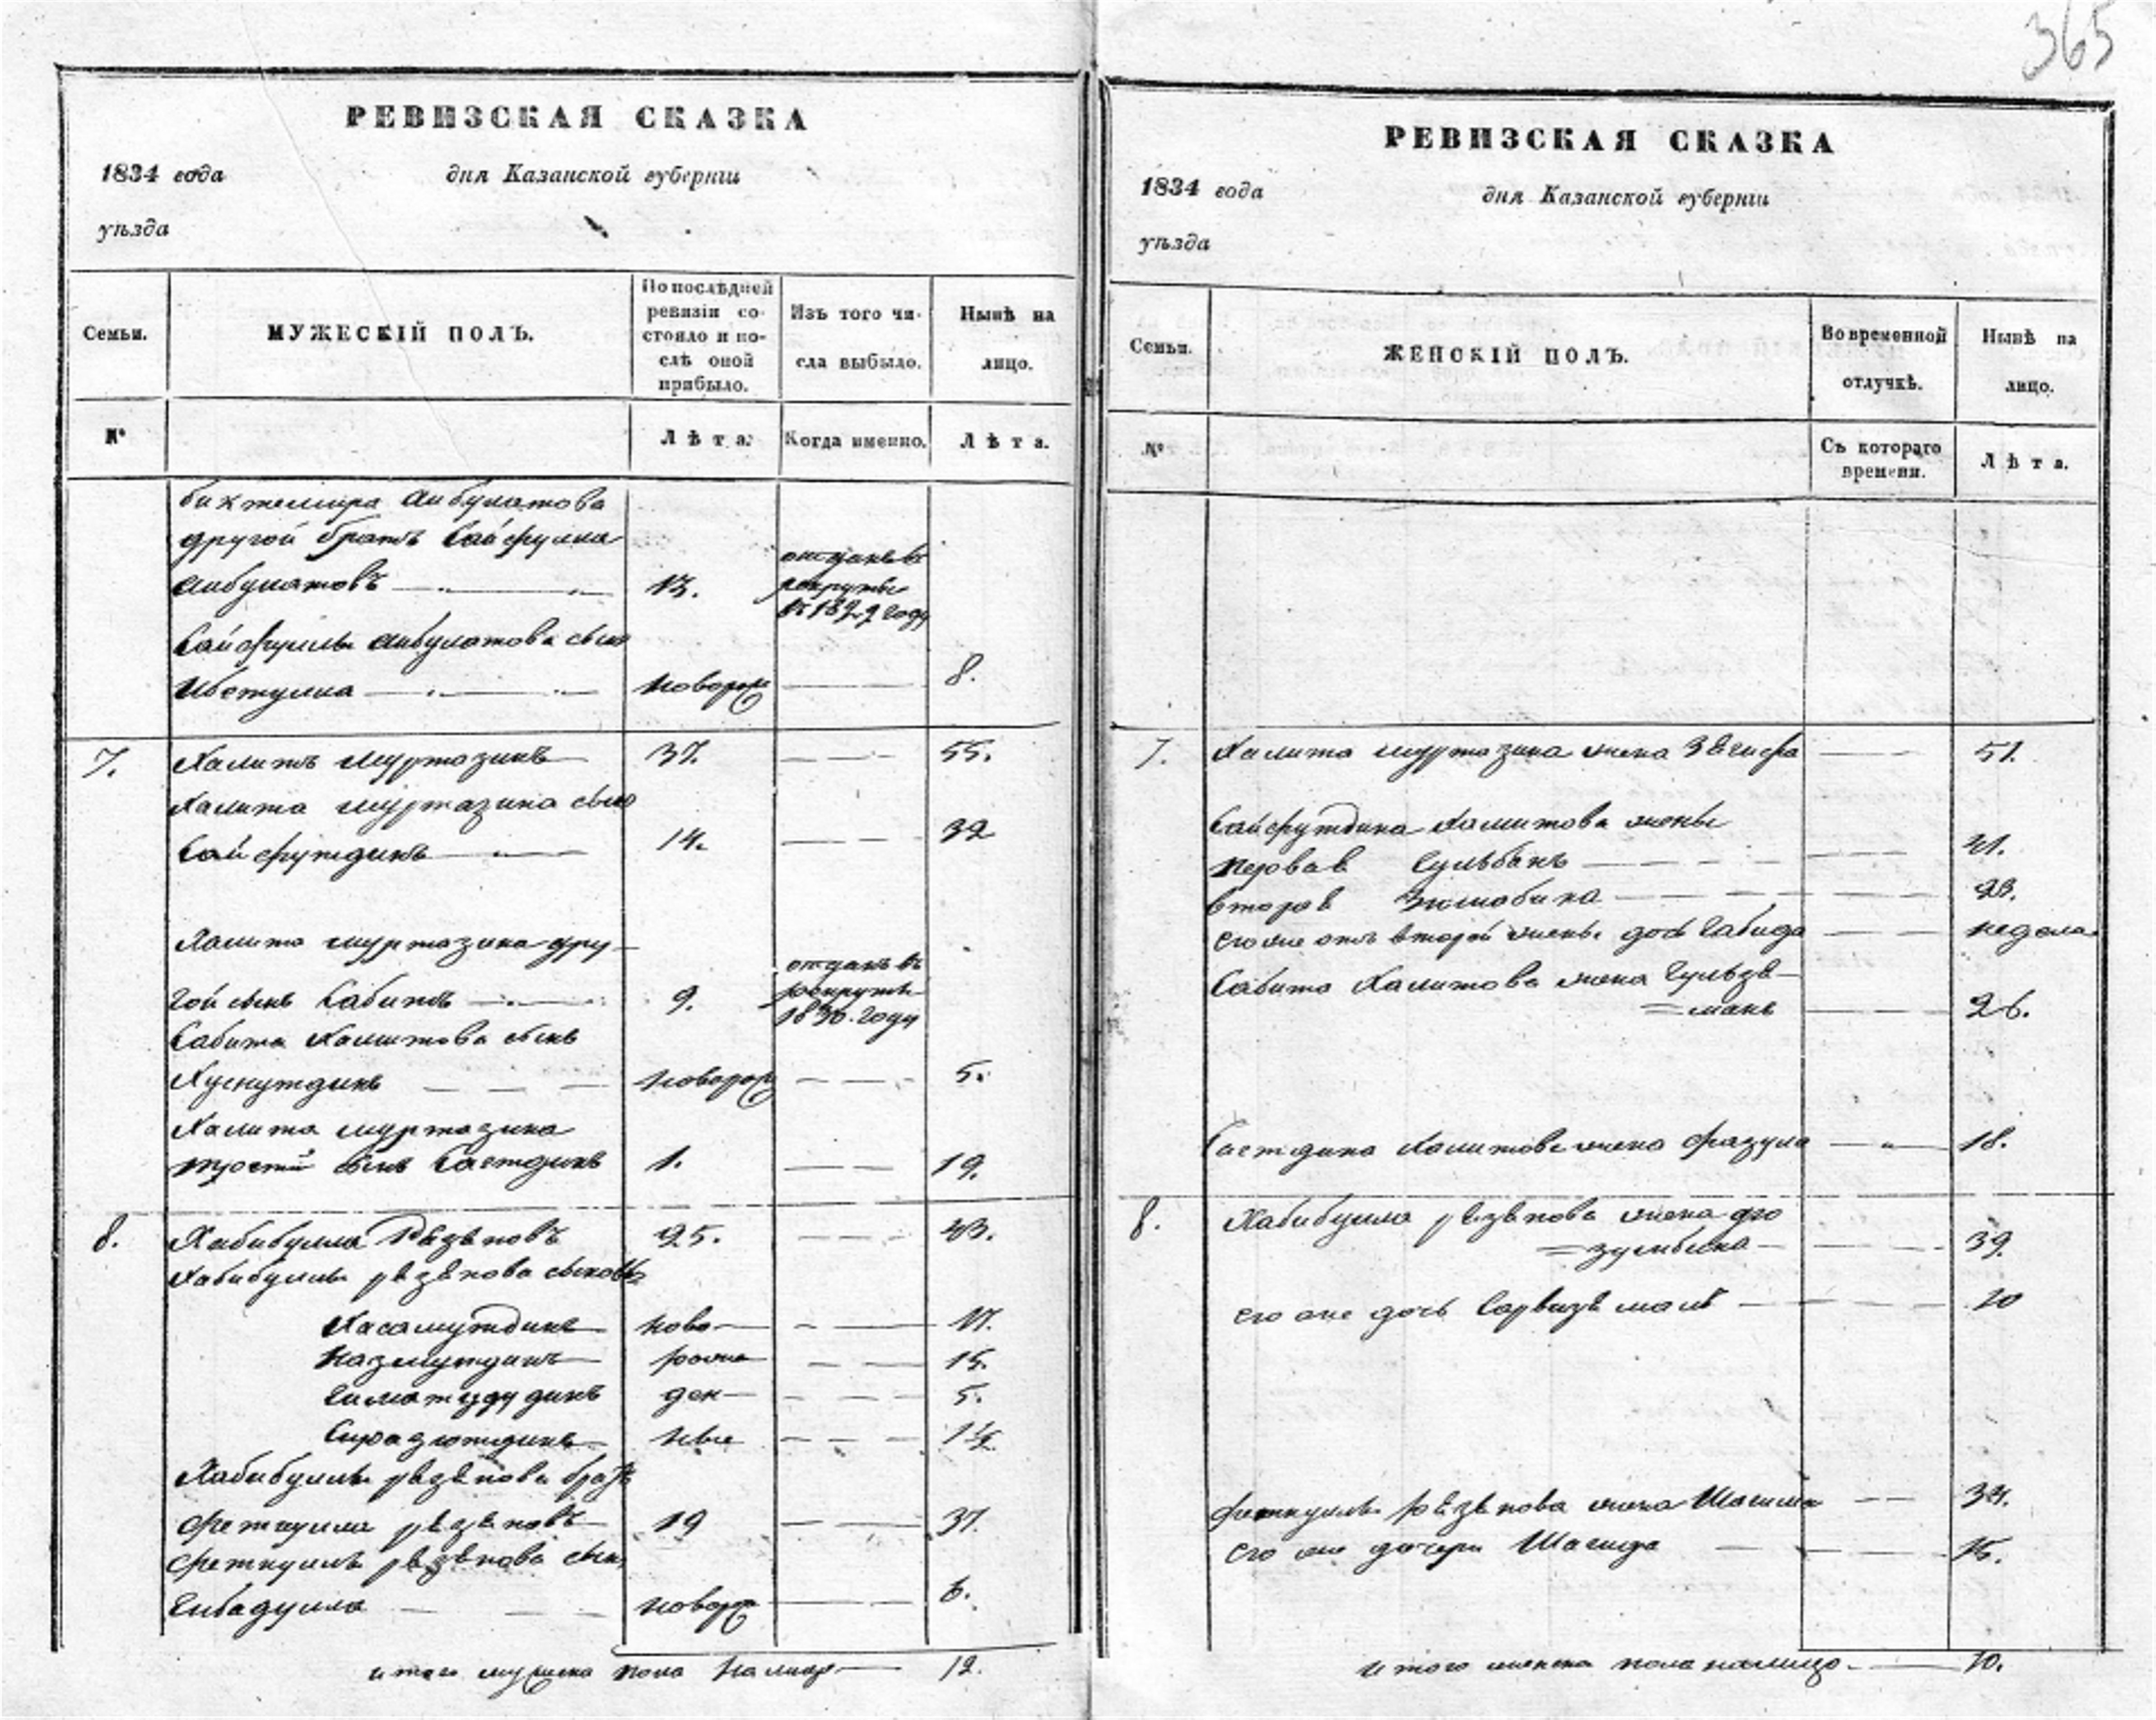 365
РЕВИЗСКАЯ СКАЗКА
1834 года дня Казанской губерніи
уѣзда
Семьи.
МУЖЕСКІЙ ПОЛЪ.
По послѣдней ревизіи со-
стояло и по-
слѣ оной
прибыло.
Изъ того чи-
сла выбыло.
Нынѣ на
лицо.
№
Лѣта.
Когда именно.
Лѣта.
Бихтемира Аибулатова
другой братъ Сайфулла
Аибулатовъ 13. отданъ въ
рекруты
въ 1827 году
Сайфуллы Аибулатова сынъ
новорож 8.
7. Халитъ Муртазинъ 37. 55.
Халита Муртазина сынъ
Сайфутдинъ 14. 32
Халита Муртазина дру-
гой сынъ Сабитъ 9. отданъ въ
рекруты
1830. году
Сабита Халитова сынъ
Хуснутдинъ новорож 5.
Халита Муртазина
третій сынъ 1. 19.
8. Хабибулла Рѣзяповъ 25. 43.
Хабибуллы Рѣзяпова сыновья
Хасамутдинъ ново- 17.
Назмутдинъ рожде 15.
ден- 5.
Сиразютдинъ ные 1½
Хабибуллы Рѣзяпова братъ
Феткулла Рѣзяповъ 19 37.
Феткуллы Рѣзяпова сынъ
Гибадулла новорож 6.
итого мужеска пола налицо 12.
РЕВИЗСКАЯ СКАЗКА
1834 года дня Казанской губерніи
уѣзда
Семьи.
ЖЕНСКІЙ ПОЛЪ.
Во временной
отлучкѣ.
Нынѣ на
лицо.
№
Съ котораго
времени.
Лѣта.
7. Халита Муртазина жена 51.
Сайфутдина Халитова жены
первая 41.
вторая 23.
его же отъ второй жены дочь Габида недела
Сабита Халитова жена Гульзя-
=мань 26.
Халитова жена Фазула 18.
8. Хабибуллы Рѣзяпова жена
39.
его же дочь 10
Феткуллы Рѣзяпова жена 34.
его же дочери Шагида 15.
итого женска пола налицо 10.